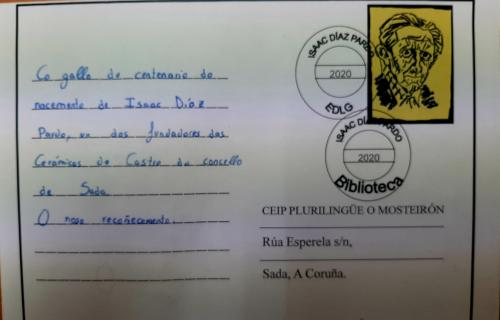 Co gallo do centenario do
nacemento de Isaac Díaz
Pardo, un dos fundadores das
Cerámicas do Castro du concello
de Sada
O noso recoñecemento
ISAAC DÍAZ PARDO
2020
EDLG
ISAAC DÍAZ PARDO
2020
Biblioteca
CEIP PLURILINGÜE O MOSTEIRÓN
Rúa Esperela s/n,
Sada, A Coruña.